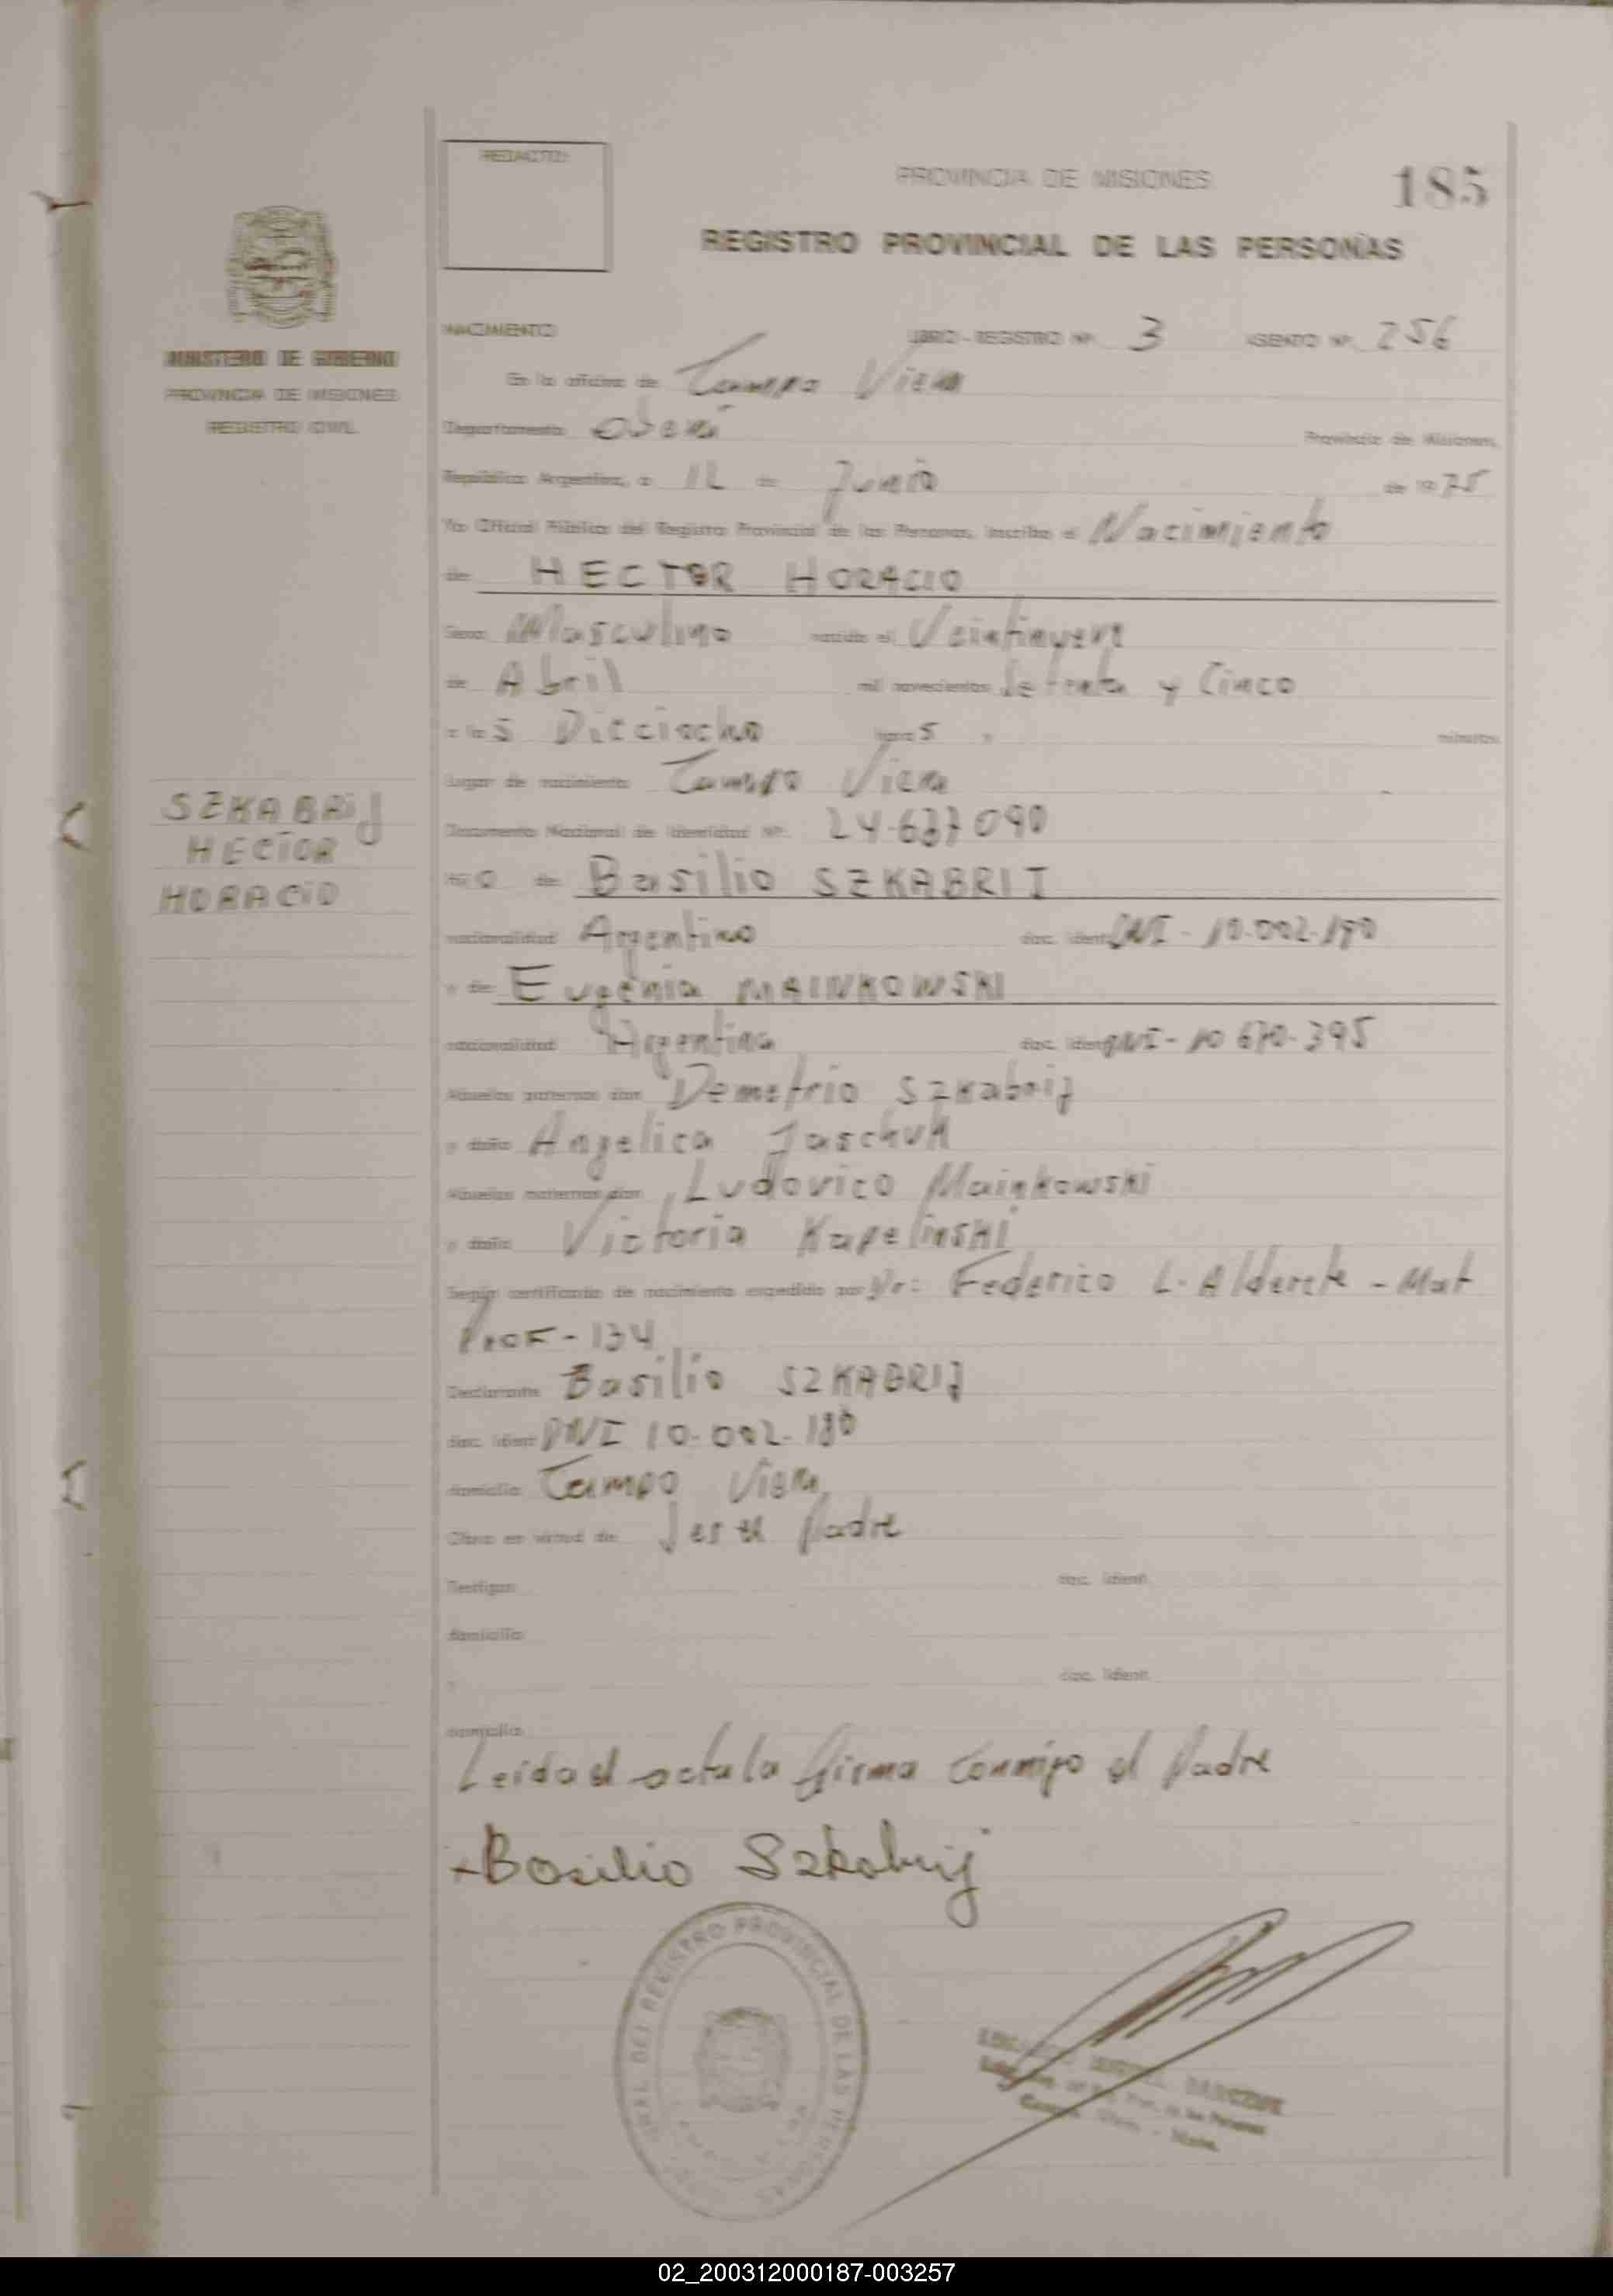 REDACTO:
PROVINCIA DE MISIONES
185
REGISTRO PROVINCIAL DE LAS PERSONAS
MINISTERIO DE GOBIERNO
PROVINCIA DE MISIONES
REGISTRO CIVIL
NACIMIENTO LIBRO - REGISTRO Nº. 3 ASIENTO Nº. 256
En la oficina de Campo Viera
Departamento Oberá Provincia de Misiones,
República Argentina, a 12 de Junio de 1975
Yo Oficial Público del Registro Provincial de las Personas, inscribo el Nacimiento
de HECTOR HORACIO
Sexo Masculino nacido el Veintinueve
de Abril mil novecientos Setenta y Cinco
a las Dieciocho horas y minutos
Lugar de nacimiento Campo Viera
Documento Nacional de Identidad Nº. 24.637 090
SZKABRIJ
HECTOR
HORACIO
hijo de Basilio SZKABRIJ
nacionalidad Argentino doc. ident. DNI - 10.002.190
y de Eugenia MAINKOWSKI
nacionalidad Argentina doc. ident. DNI - 10 670.395
Abuelos paternos don Demetrio Szkabrij
y doña Angelica Jaschuk
Abuelos maternos don Ludovico Mainkowski
y doña Victoria Kapelinski
Según certificado de nacimiento expedido por Dr: Federico L. Alderete - Mat
Prof - 134
Declarante Basilio SZKABRIJ
doc. ident. DNI 10.002.190
domicilio Campo Viera
Obra en virtud de Ser el Padre
Testigos doc. ident.
domicilio
y doc. ident.
domicilio
Leida el acta la firma conmigo el Padre
Basilio Szkabrij
DEL REGISTRO PROVINCIAL DE LAS PERSONAS
02_200312000187-003257